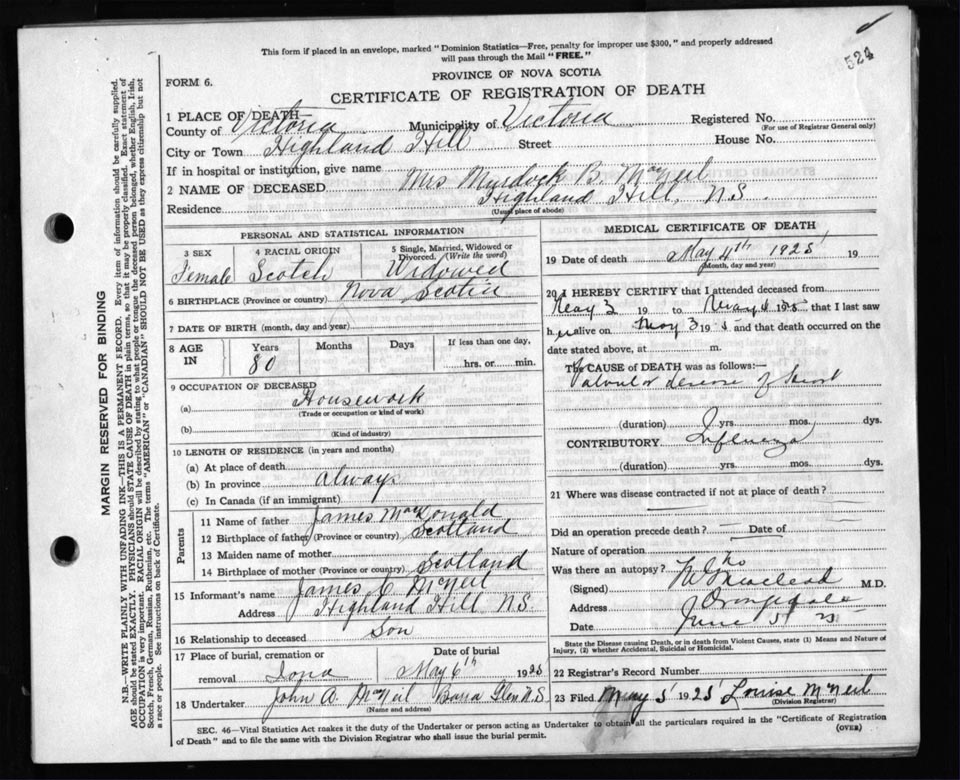 This form if placed in an envelope, marked "Dominion Statistics—Free, penalty for improper use $300," and properly addressed
will pass through the Mail "FREE."
524
PROVINCE OF NOVA SCOTIA
FORM 6.
CERTIFICATE OF REGISTRATION OF DEATH
1 PLACE OF DEATH—
County of Victoria Municipality of Victoria Registered No.
(For use of Registrar General only)
City or Town Highland Hill Street House No.
If in hospital or institution, give name
2 NAME OF DECEASED Mrs Murdock B. MacNeil
Residence Highland Hill, N.S
(Usual place of abode)
PERSONAL AND STATISTICAL INFORMATION
3 SEX Female
4 RACIAL ORIGIN Scotch
5 Single, Married, Widowed or Divorced. (Write the word) Widowed
6 BIRTHPLACE (Province or country) Nova Scotia
7 DATE OF BIRTH (month, day and year)
8 AGE IN Years 80 Months Days If less than one day, hrs. or min.
9 OCCUPATION OF DECEASED
(a) Housework
(Trade or occupation or kind of work)
(b)
(Kind of industry)
10 LENGTH OF RESIDENCE (in years and months)
(a) At place of death
(b) In province always
(c) In Canada (if an immigrant)
Parents
11 Name of father James MacDonald
12 Birthplace of father (Province or country) Scotland
13 Maiden name of mother
14 Birthplace of mother (Province or country) Scotland
15 Informant's name James C McNeil
Address Highland Hill N.S.
16 Relationship to deceased Son
17 Place of burial, cremation or removal Iona
Date of burial May 6th 1925
18 Undertaker John A. MacNeil Barra Glen N.S
(Name and address)
MEDICAL CERTIFICATE OF DEATH
19 Date of death May 4th 1925 19
(Month, day and year)
20 I HEREBY CERTIFY that I attended deceased from
May 3 19 to May 4 1925 that I last saw
her alive on May 3 1925 and that death occurred on the
date stated above, at m.
The CAUSE of DEATH was as follows:—
Valvular disease of heart
(duration) yrs. mos. dys.
CONTRIBUTORY Influenza
(duration) yrs. mos. dys.
21 Where was disease contracted if not at place of death?
Did an operation precede death? Date of
Nature of operation
Was there an autopsy? No
(Signed) Macleod M.D.
Address Orangedale
Date June 5 25
State the Disease causing Death, or in death from Violent Causes, state (1) Means and Nature of
Injury, (2) whether Accidental, Suicidal or Homicidal.
22 Registrar's Record Number
23 Filed May 5 1925 Louise McNeil
(Division Registrar)
SEC. 46—Vital Statistics Act makes it the duty of the Undertaker or person acting as Undertaker to obtain all the particulars required in the "Certificate of Registration
of Death" and to file the same with the Division Registrar who shall issue the burial permit.
(OVER)
MARGIN RESERVED FOR BINDING
N.B.—WRITE PLAINLY WITH UNFADING INK—THIS IS A PERMANENT RECORD. Every item of information should be carefully supplied.
AGE should be stated EXACTLY. PHYSICIANS should STATE CAUSE OF DEATH in plain terms, so that it may be properly classified. Exact statement of
OCCUPATION is very important. RACIAL ORIGIN will be described by stating to what people or tongue the deceased person belonged, whether English, Irish,
Scotch, French, German, Russian, Ruthenian, etc. The terms "AMERICAN" or "CANADIAN" SHOULD NOT BE USED as they express citizenship but not
a race or people. See instructions on back of Certificate.